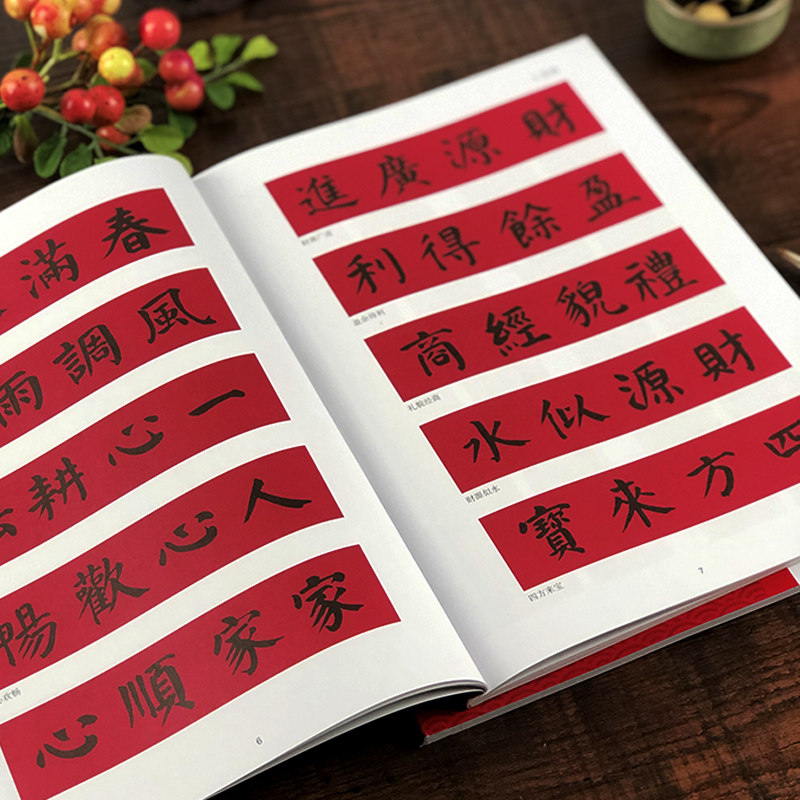 春滿
風調雨
一心耕
人心歡暢
欢畅
家家順心
6
財源廣進
财源广进
盈餘得利
盈余得利
禮貌經商
礼貌经商
財源似水
财源似水
四方來寶
四方来宝
7